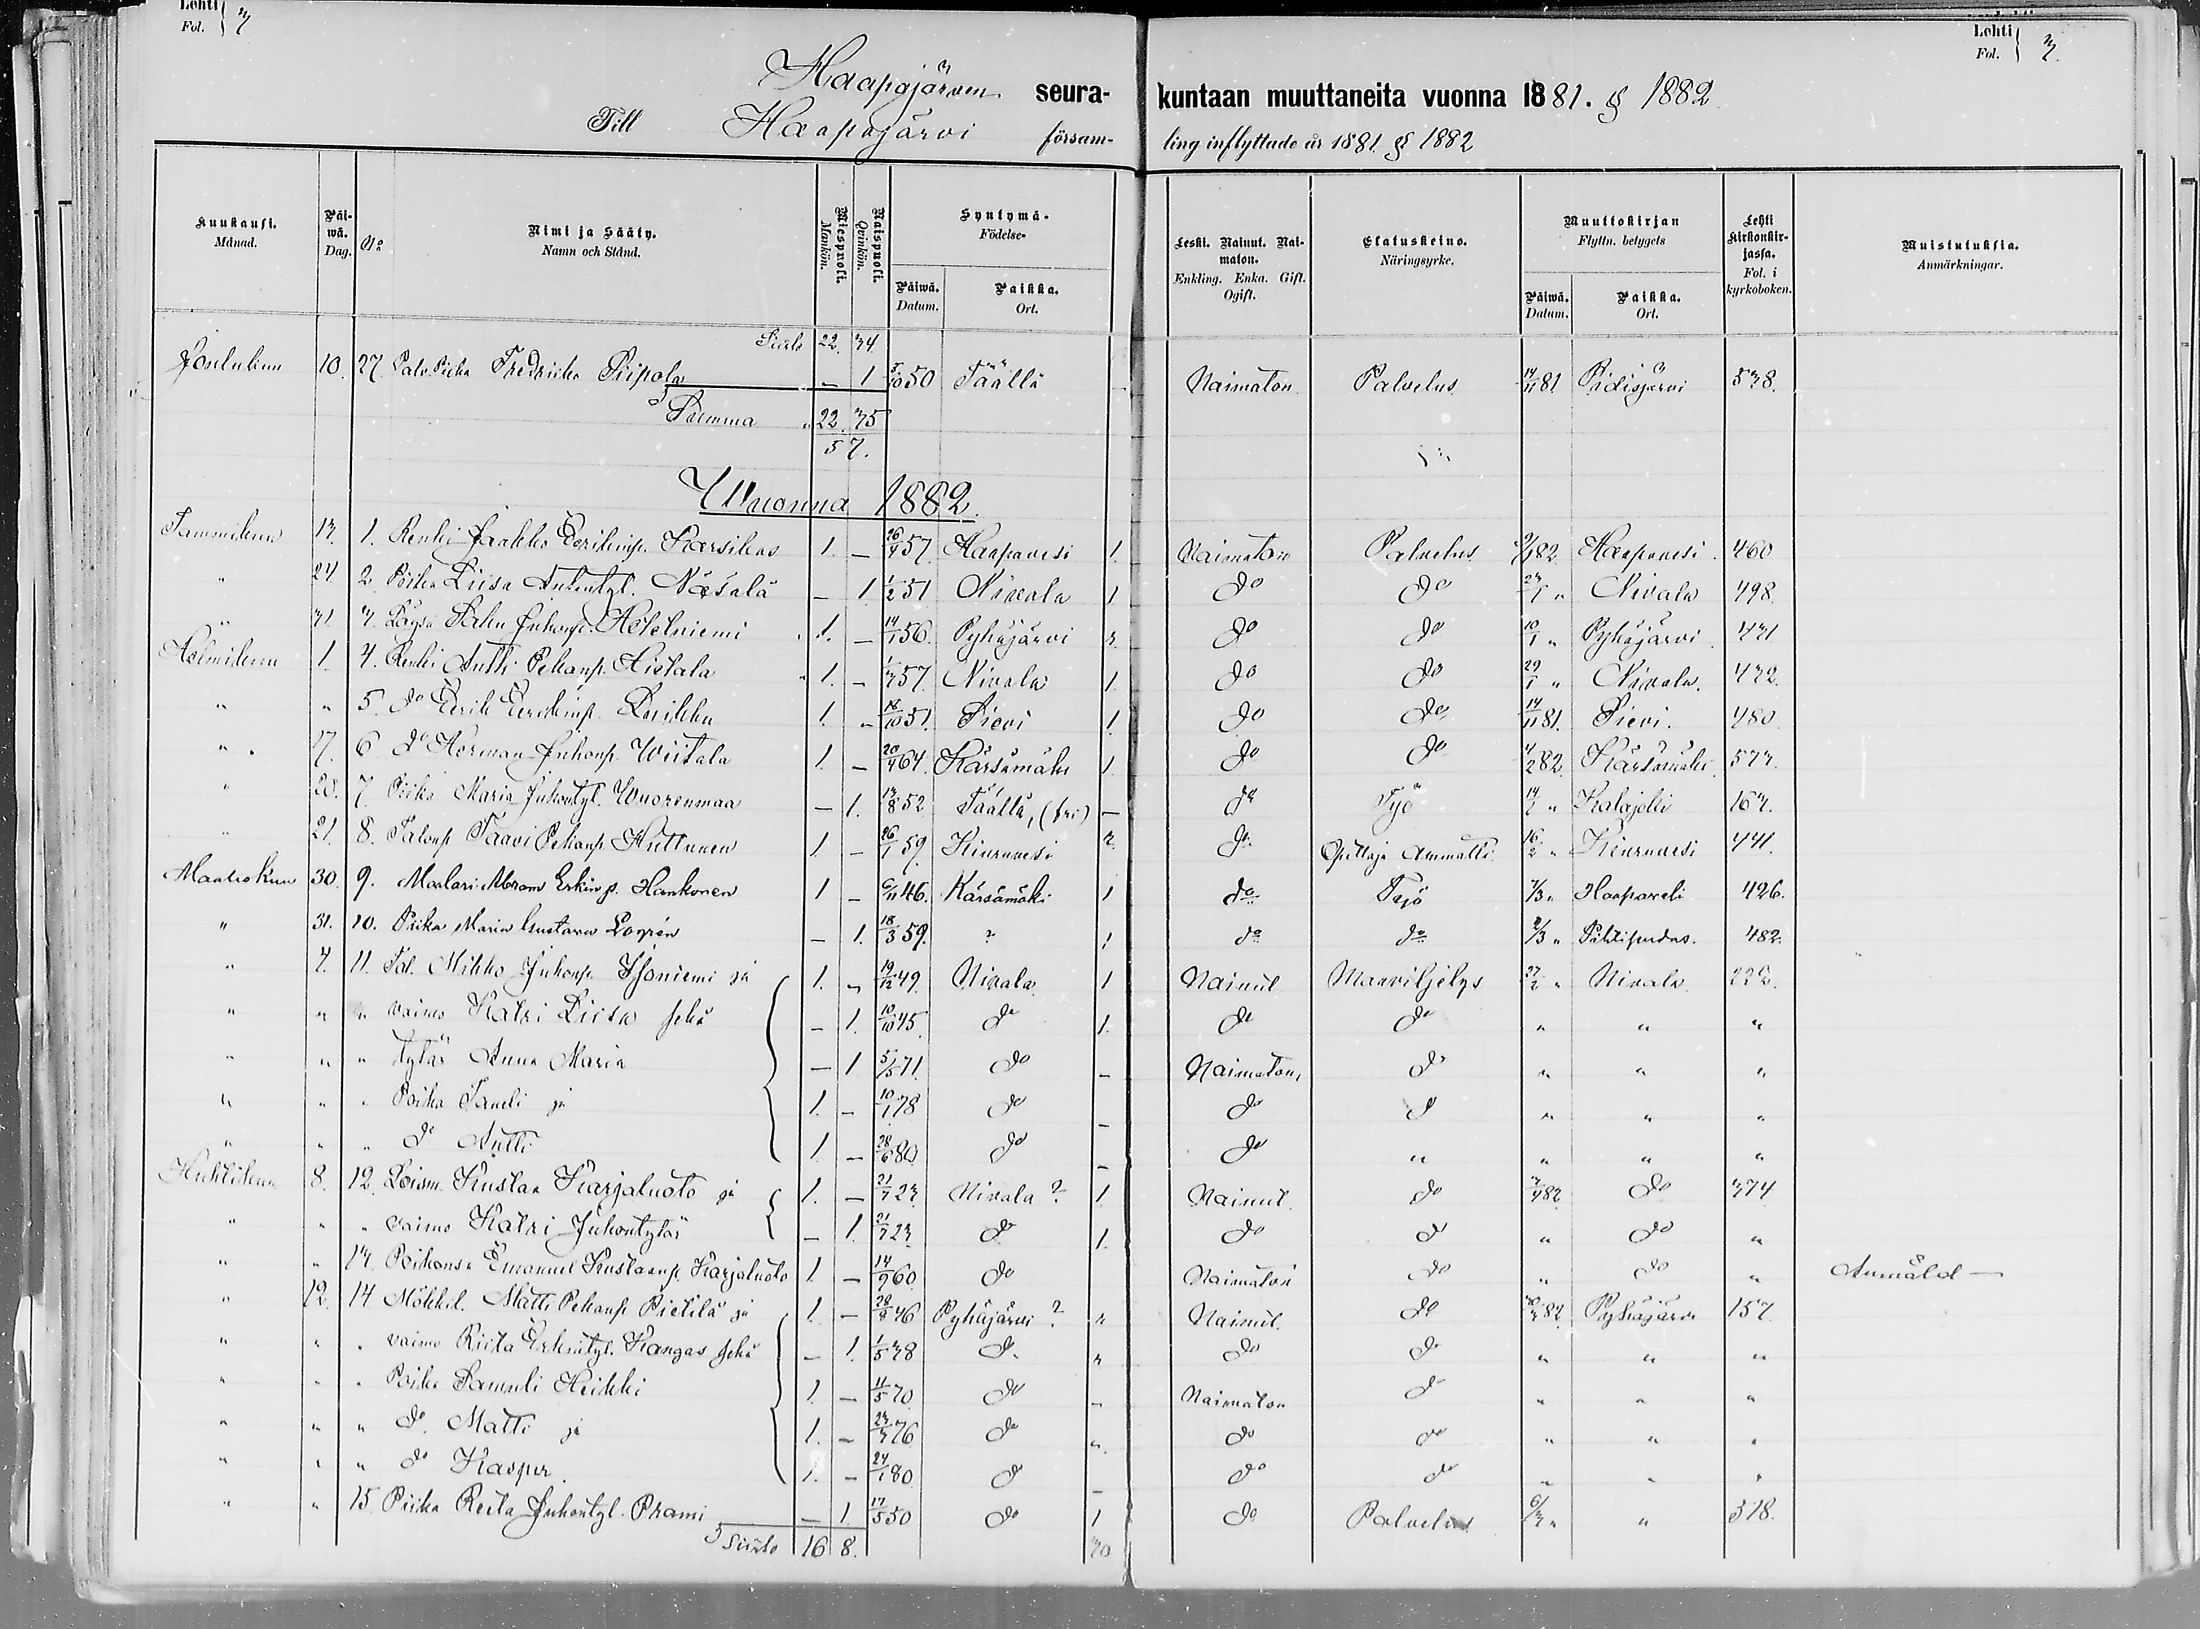 Lehti 3
Fol.
Lehti 3.
Fol.
Haapajärven seura- kuntaan muuttaneita vuonna 1881. & 1882
Till Haapajärvi försam- ling inflyttade år 1881 & 1882
Kuukausi. Månad. Päiwä. Dag. No Nimi ja Sääty. Namn och Stånd. Miespuoli. Mankön. Naispuoli. Qvinkön. Syntymä- Födelse- Päiwä. Datum. Paikka. Ort. Leski. Nainut. Naimaton. Enkling. Enka. Gift. Ogift. Elatuskeino. Näringsyrke. Muuttokirjan Flyttn. betygets Päiwä. Datum. Paikka. Ort. Lehti kirkonkirjassa. Fol. i kyrkoboken. Muistutuksia. Anmärkningar.
Siirto 22. 34.
Joulukuu 10. 27. Palv. Piika Fredrika Piipola — 1 50 Täällä — Naimaton. Palvelus 14/11 81 Pidisjärvi 538.
Summa 22. 35
57.
Wuonna 1882.
Tammikuu 13. 1. Renki Jaakko Eerikinp. Karsikas 1. — 26/4 57. Haapavesi 1. Naimaton Palvelus 82. Haapavesi 460
" 24 2. Piika Liisa Antintyt. Näsälä — 1 1/2 51 Nivala 1 do do 23/1 " Nivala 498.
" 31 3. Juhonp. 1. — 14/1 56. Pyhäjärvi do do 10/1 " Pyhäjärvi 431
Helmikuu 1. 4. Renki Antti Pekanp. Hietala 1. — 1/3 57. Nivala 1. do do 29/1 " Nivala. 432.
" " 5. do Eerik Eerikinp. 1. " 18/10 51. Sievi 1. do do 14/11 81. Sievi. 480.
" 17. 6 do Herman Juhonp. Wiitala 1. — 20/4 64. Kärsämäki 1. do do 4/2 82. Kärsämäki 573.
" 20. 7. Piika Maria Juhontyt. Wuorenmaa — 1. 13/8 52 Täällä, — do Työ 14/2 " Kalajoki 163.
" 21. 8. Talonp Taavi Pekanp Huttunen 1. — 26/1 59. Kiuruvesi do Opettaja Ammatti. 16/2 " Kiuruvesi 441.
Maaliskuu 30. 9. Maalari Abram Erkinp. Hankonen 1 — 6/11 46. Kärsämäki 1 do Työ 7/3 " Haapavesi 426.
" 31. 10. Piika Maria Gustava Logrén — 1. 18/3 59. ? 1 do do 2/3 " Pihtipudas. 482.
" 4. 11. Tal. Mikko Juhonp. Isoniemi ja 1. " 19/12 49. Nivala 1 Nainut Maaviljelys 27/2 " Nivala 222.
" " " vaimo Katri Liisa sekä — 1. 10/10 45 do 1. do do " " "
" " " tytär Anna Maria — 1 5/5 71 do — Naimaton, do " " "
" " " Poika Taneli ja 1. — 10/1 78 do — do do " " "
" " " do Antti 1 — 28/6 80 do — do " " " "
Huhtikuu 8. 12. Loism. Kustaa Karjaluoto ja 1. — 21/7 23 Nivala ? 1. Nainut. do 3/4 82. do 374
" " " vaimo Katri Juhontytär — 1 21/7 23. do 1. do do " do "
" " 13. Poikansa Emanuel Kustaanp. Karjaluoto 1 — 14/9 60. do Naimaton do " do " Anmäld —
" 12. 14 Mökkil. Matti Pekanp Pietilä ja 1. — 28/8 46 Pyhäjärvi ? Nainut. do 82. Pyhäjärvi 157.
" " " vaimo Riita Erkintyt. Kangas sekä — 1. 1/5 38 do do do " " "
" " " Poika Samuli Heikki 1. — 11/5 70. do — Naimaton do " " "
" " " do Matti ja 1. — 23/3 76 do " do do " " "
" " " do Kasper 1. — 24/1 80 do — do do " " "
" " 15. Piika Reeta Juhontyt. Prami — 1. 17/5 50 do 1 do Palvelus 6/3 " " 318.
Siirto 16 8. 30